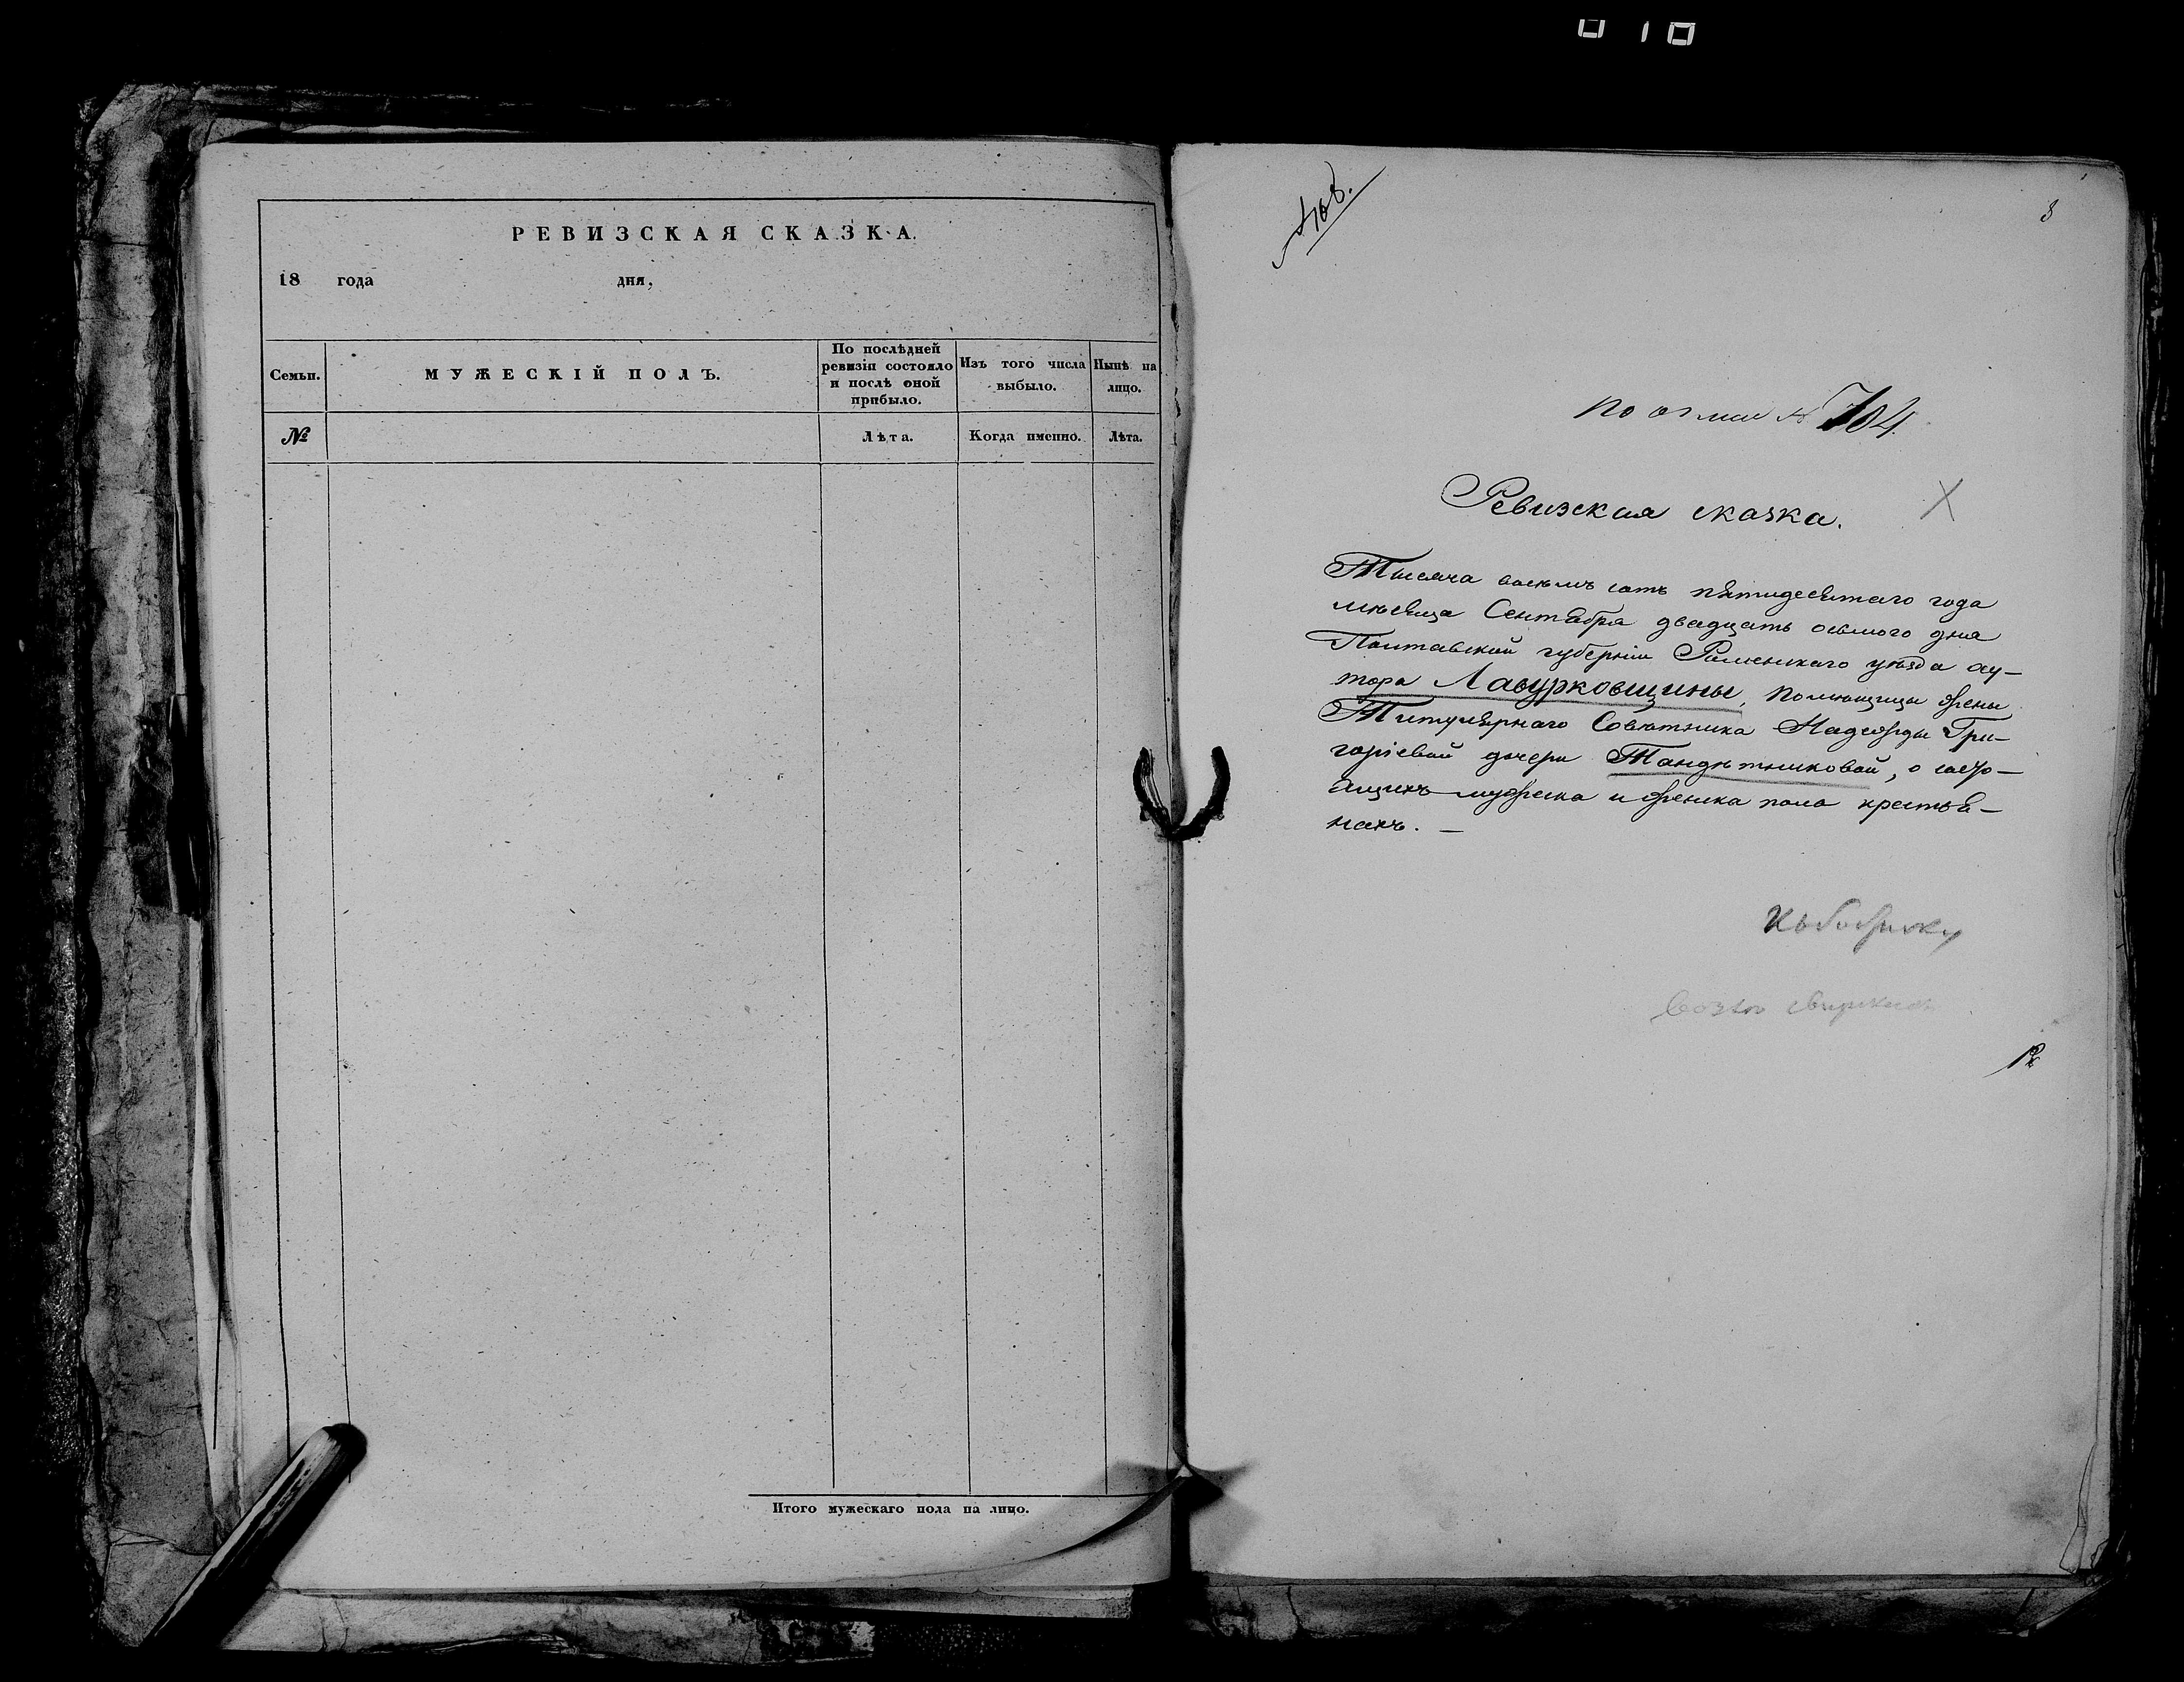 РЕВИЗСКАЯ СКАЗКА.
18 года дня,
Семьи.
МУЖЕСКІЙ ПОЛЪ.
По послѣдней ревизіи состояло и послѣ оной прибыло.
Изъ того числа выбыло.
Нынѣ на лицо.
№
Лѣта.
Когда именно.
Лѣта.
Итого мужескаго пола на лицо.
8
По описи № 704.
Ревизская сказка.
Тысяча восемь сотъ пятидесятаго года
мѣсяца Сентября двадцать осьмого дня
Полтавской губерніи Роменскаго уѣзда ху-
тора Лавурковщины, помѣщицы жены
Титулярнаго Совѣтника Надежды Гри-
горіевой дочери Тандѣтниковой, о состо-
ящихъ мужеска и женска пола крестья-
нахъ. —